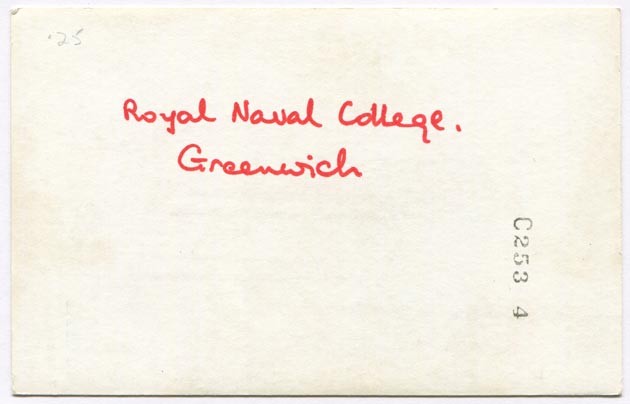 .25
Royal Naval College.
Greenwich
C253 4